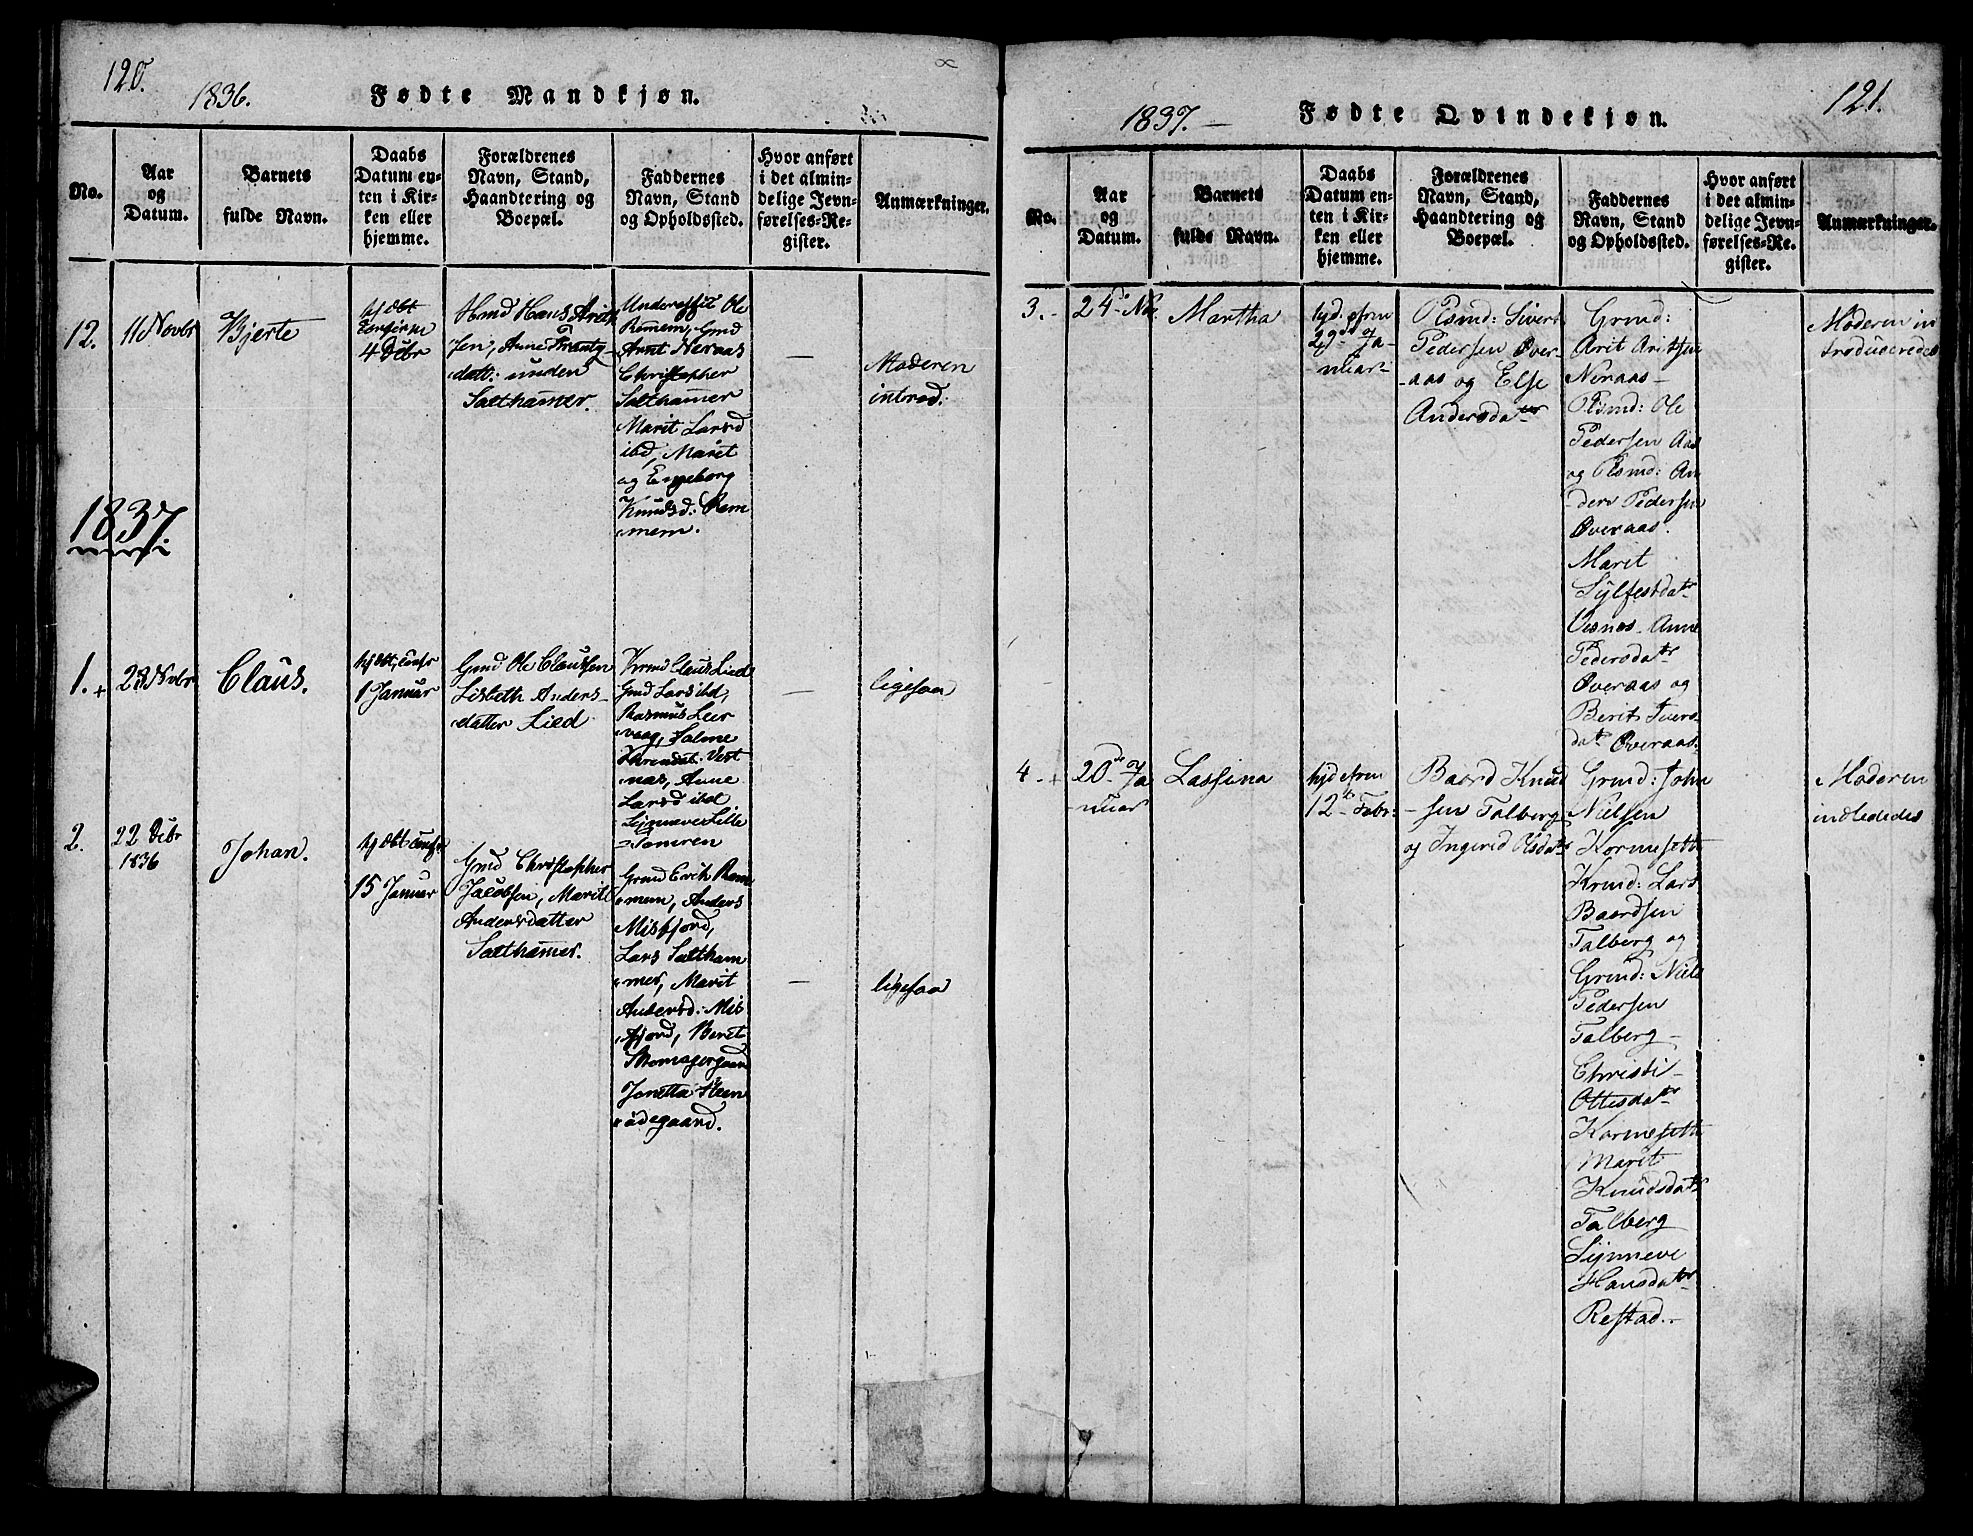 120.
1836.
Fødte Mandkjøn.
No.
Aar
og
Datum.
Barnets
fulde Navn.
Daabs
Datum en-
ten i Kir-
ken eller
hjemme.
Forældrenes
Navn, Stand,
Haandtering og
Boepæl.
Faddernes
Navn, Stand
og Opholdssted.
Hvor anført
i det almin-
delige Jevn-
førelses-Re-
gister.
Anmærkninger.
12.
11 Novbr
Bjerte
hj dbt
4 Decbr
Hmd Hans
sen, Anne
datt: unden
Salthamer.
Underoffic Ole
Romem, Gmd
Arnt Neraas
Christopher
Salthamer
Marit Larsd
ibd, Maret
og Engeborg
Knudsd: Rom
mem.
—
Moderen
introd:
1837.
1. +
23 Novbr
Claus.
hj dbt, conf
1 Januar
Gmd Ole Claussen
Lisbeth Anders-
datter Lied
Krmd Claus Lied
Gmd Lars ibd,
Rasmus Leir
vaag, Salme
Vest
nas, Anne
Larsd ibd
Synnøve Lille
Tomren
—
ligesaa
2.
22 Decbr
1836
Johan.
hj dbt conf
15 Januar
Gmd Christopher
Jacobsen, Marit
Andersdatter
Salthamer.
Gmd Erich Rom
mem, Anders
Misfjord,
Lars Saltham
mer, Marit
Andersd: Mis
fjord, Beret
Skomagergaard
Jonetta Steen
ødegaard.
—
ligesaa
121.
1837. —
Fødte Qvindekjøn.
No.
Aar
og
Datum.
Barnets
fulde Navn.
Daabs
Datum en-
ten i Kir-
ken eller
hjemme.
Forældrenes
Navn, Stand,
Haandtering og
Boepæl.
Faddernes
Navn, Stand
og Opholdssted.
Hvor anført
i det almin-
delige Jevn-
førelses-Re-
gister.
Anmærkninger.
3. -
24de Nov.
Martha
29de Ja-
nuar
Plsmd: Sivert
Pedersen Over-
aas og Else
Andersdatter
Grmd:
Arit Aritsen
Neraas -
Plsmd: Ole
Pedersen Aas
og Plsmd: An
ders Pedersen
Overaas.
Marit
Sylfestdatr
Vesnes - Anne
Pedersdatr
Overaas og
Berit Ivers-
datr Overaas.
Moderen in
troduceredes
4 - +
20de Ja
nuar
Lassina
12te Febr:
Baard Knud
sen Talberg
og Ingerid Olsdatr
Grmd: John
Nielsen
Kormesette
Krmd: Lars
Baardsen
Talberg og
Grmd: Niels
Pedersen
Talberg -
Christi -
Ottesdatr
Kormesette
Marit
Knudsdatr
Talberg
Synneve
Hansdatr
Restad. -
Moderen
indlededes